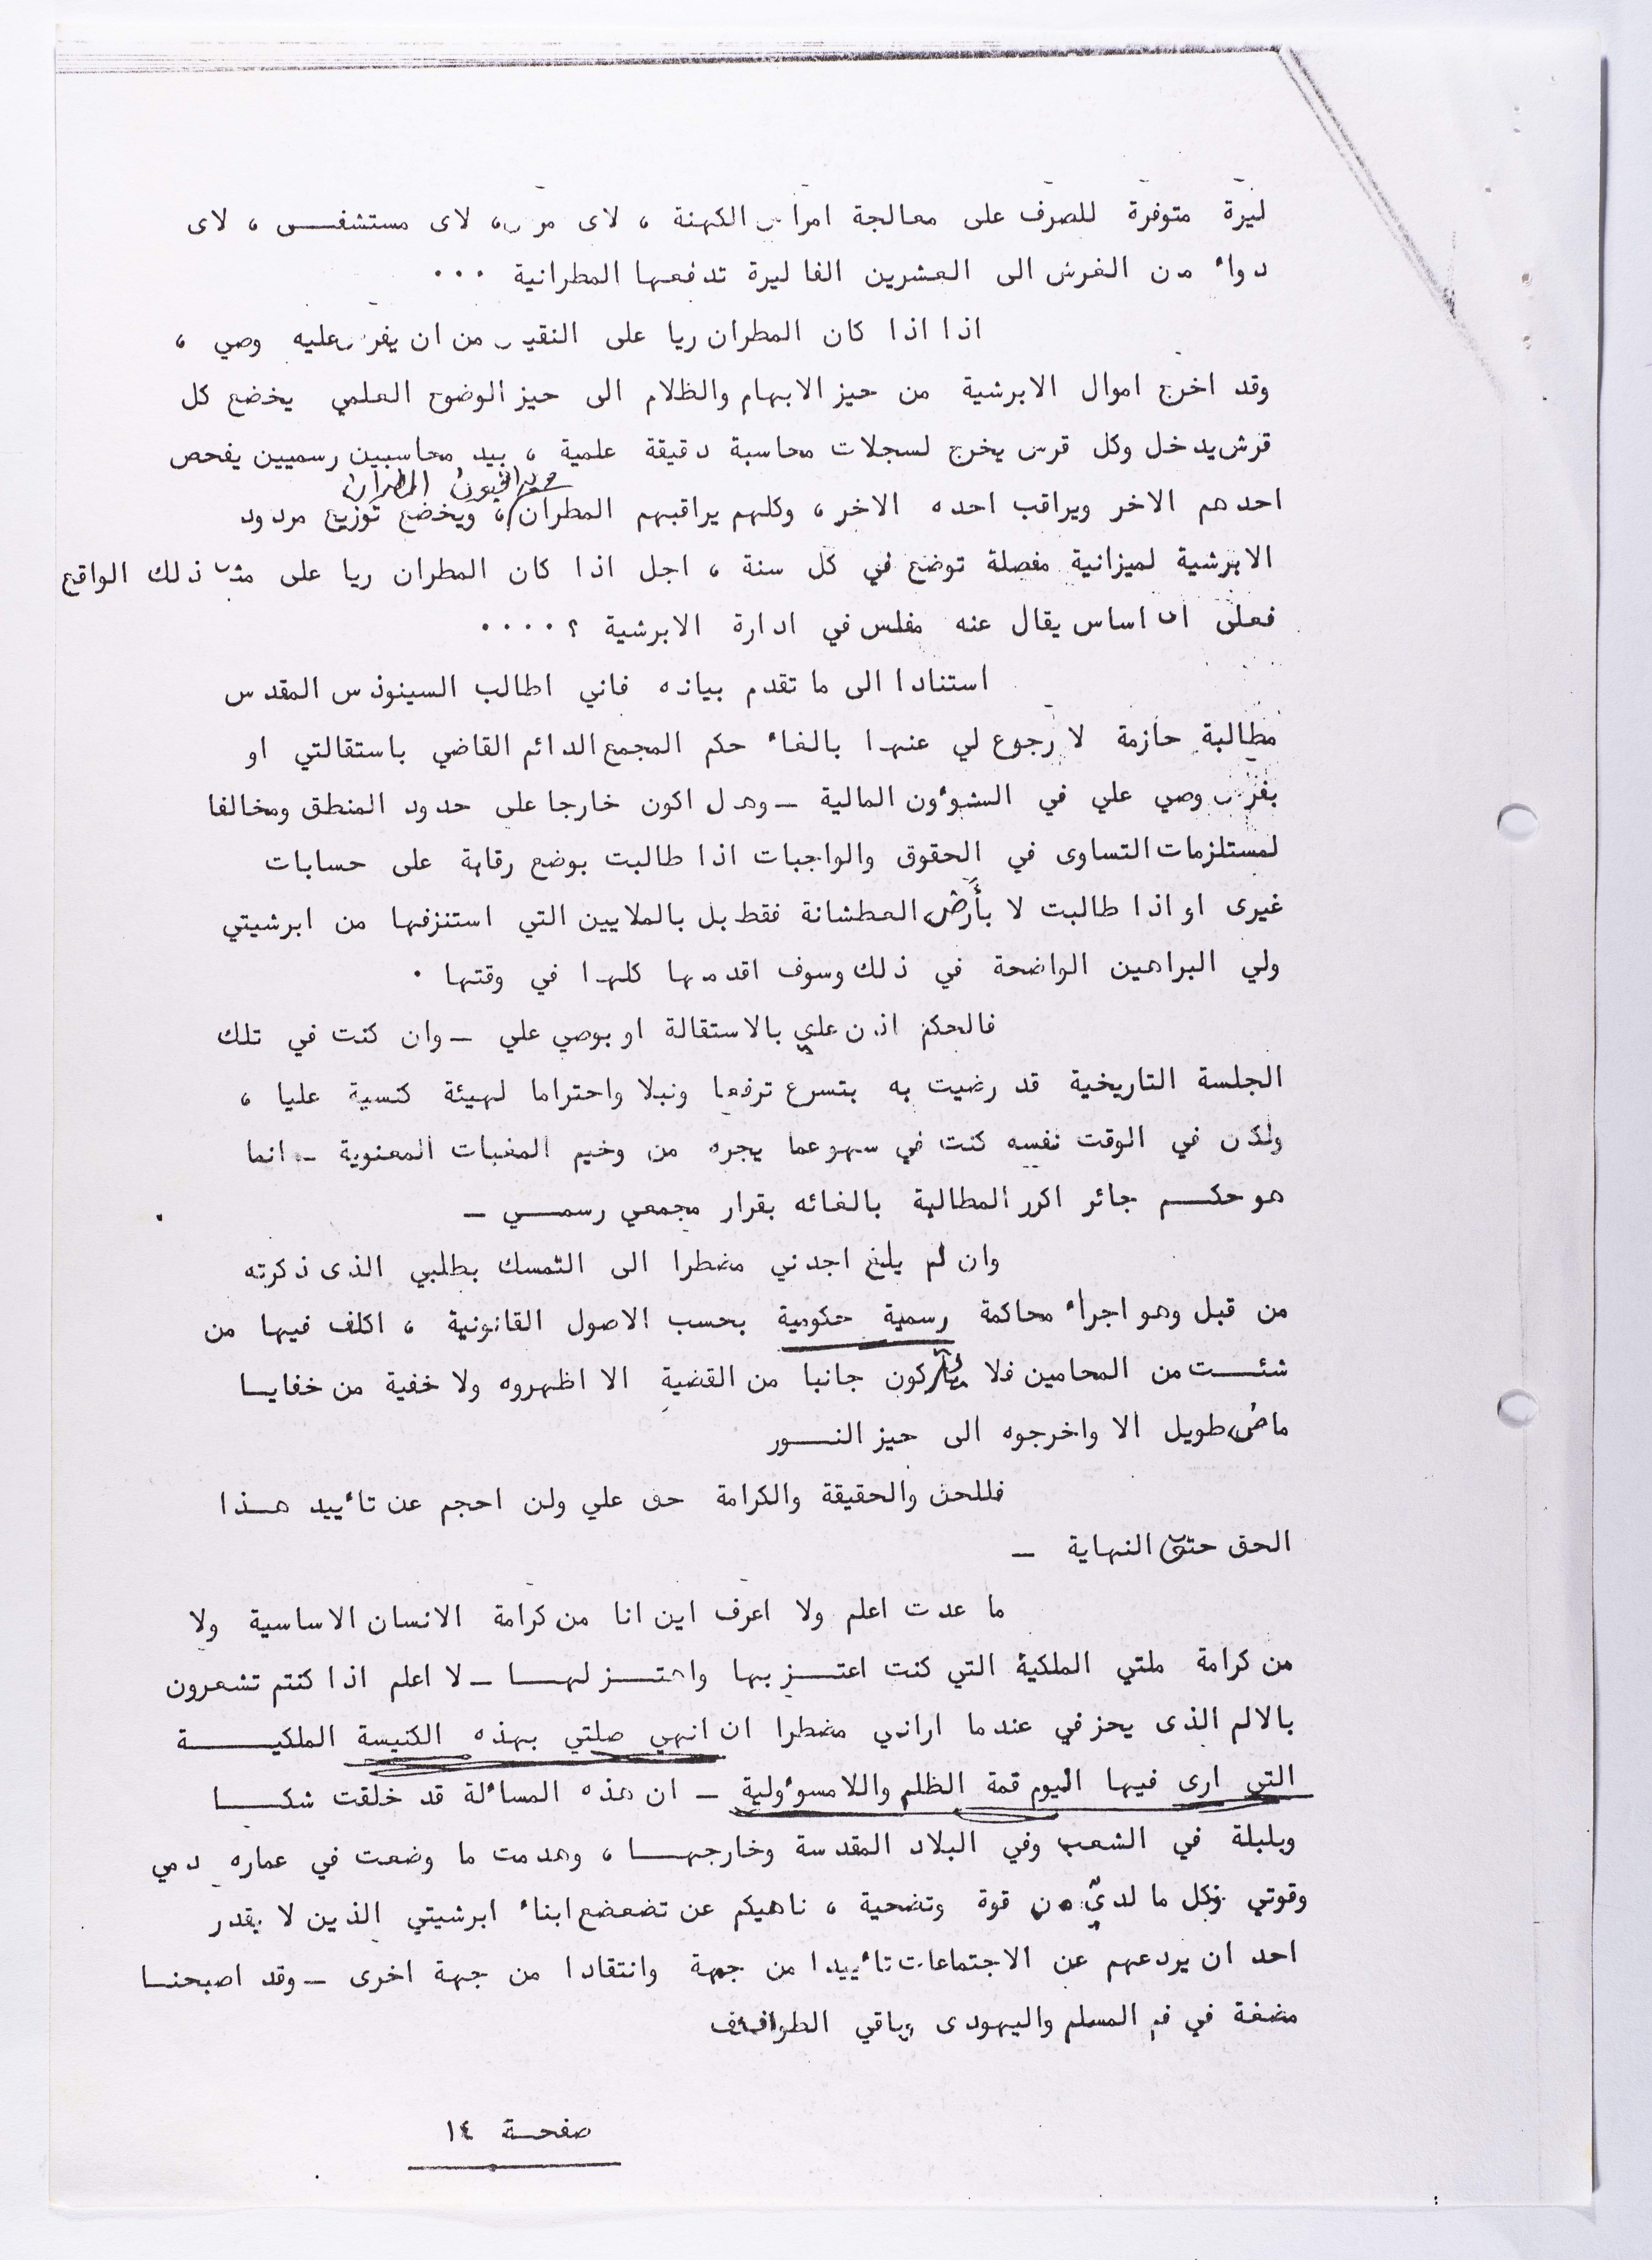 ليرة متوفرة للصرف على معالجة امراض الكهنة ، لاى مرض، لاى مستشفــى ، لاى
دواء من الغرش الى العشرين الفا ليرة تدفعها المطرانية ...
اذا اذا كان المطران ريا على النقيض من ان يفرض عليه وصي ،
وقد اخرج اموال الابرشية من حيز الابهام والظلام الى حيز الوضوح العلمي يخضع كل
قرش يدخل وكل قرش يخرج لسجلات محاسبة دقيقة علمية ، بيد محاسبين رسميين يفحص
المطران
احدهم الاخر ويراقب احده الاخر ، وكلهم يراقبهم المطران ، ويخضع توزيع مردود
الابرشية لميزانية مفصلة توضع في كل سنة ، اجل اذا كان المطران ريا على مثل ذلك الواقع
فعلى اى اساس يقال عنه مفلس في ادارة الابرشية ؟ ....
استنادا الى ما تقدم بيانه فاني اطالب السينوذس المقدس
مطالبة حازمة لا رجوع لي عنها بالغاء حكم المجمع الدائم القاضي باستقالتي او
بفرض وصي علي في الشوءون المالية ــ وهل اكون خارجا على حدود المنطق ومخالفا
لمستلزمات التساوى في الحقوق والواجبات اذا طالبت بوضع رقابة على حسابات
غيرى او اذا طالبت لا بأرض العطشانة فقط بل بالملايين التي استنزفها من ابرشيتي
ولي البراهين الواضحة في ذلك وسوف اقدمها كلها في وقتها .
فالحكم اذن علي بالاستقالة او بوصي علي ــ وان كنت في تلك
الجلسة التاريخية قد رضيت به بتسرع ترفعا ونبلا واحتراما لهيئة كنسية عليا ،
ولكن في الوقت نفسه كنت في سهو عما يجره من وخيم المغبات المعنوية ــ انما
هو حكــم جائر اكرر المطالبة بالغائه بقرار مجمعي رسمــي ــ
وان لم يلغ اجدني مضطرا الى التمسك بطلبي الذى ذكرته
من قبل وهو اجراء محاكمة رسمية حكومية بحسب الاصول القانونية ، اكلف فيها من
شئــت من المحامين فلا يتركون جانبا من القضية الا اظهروه ولا خفية من خفايــا
ماض طويل الا واخرجوه الى حيز النــور
فللحق والحقيقة والكرامة حق علي ولن احجم عن تاءييد هــذا
الحق حتى النهاية ــ
ما عدت اعلم ولا اعرف اين انا من كرامة الانسان الاساسية ولا
من كرامة ملتي الملكية التي كنت اعتــز بها واهتــز لهــا ــ لا اعلم اذا كنتم تشعرون
بالالم الذى يحز في عندما اراني مضطرا ان انهي صلتي بهذه الكنيسة الملكيــة
التي ارى فيها اليوم قمة الظلم واللامسوءولية ــ ان هذه المساءلة قد خلقت شكــا
وبلبلة في الشعب وفي البلاد المقدسة وخارجهــا ، وهدمت ما وضعت في عماره دمي
وقوتي وكل ما لديّ من قوة وتضحية ، ناهيكم عن تضعضع ابناء ابرشيتي الذين لا يقدر
احد ان يردعهم عن الاجتماعات تاءييدا من جهة وانتقادا من جهة اخرى ــ وقد اصبحنــا
مضغة في فم المسلم واليهودى وباقي الطوائف
صفحــة ١٤